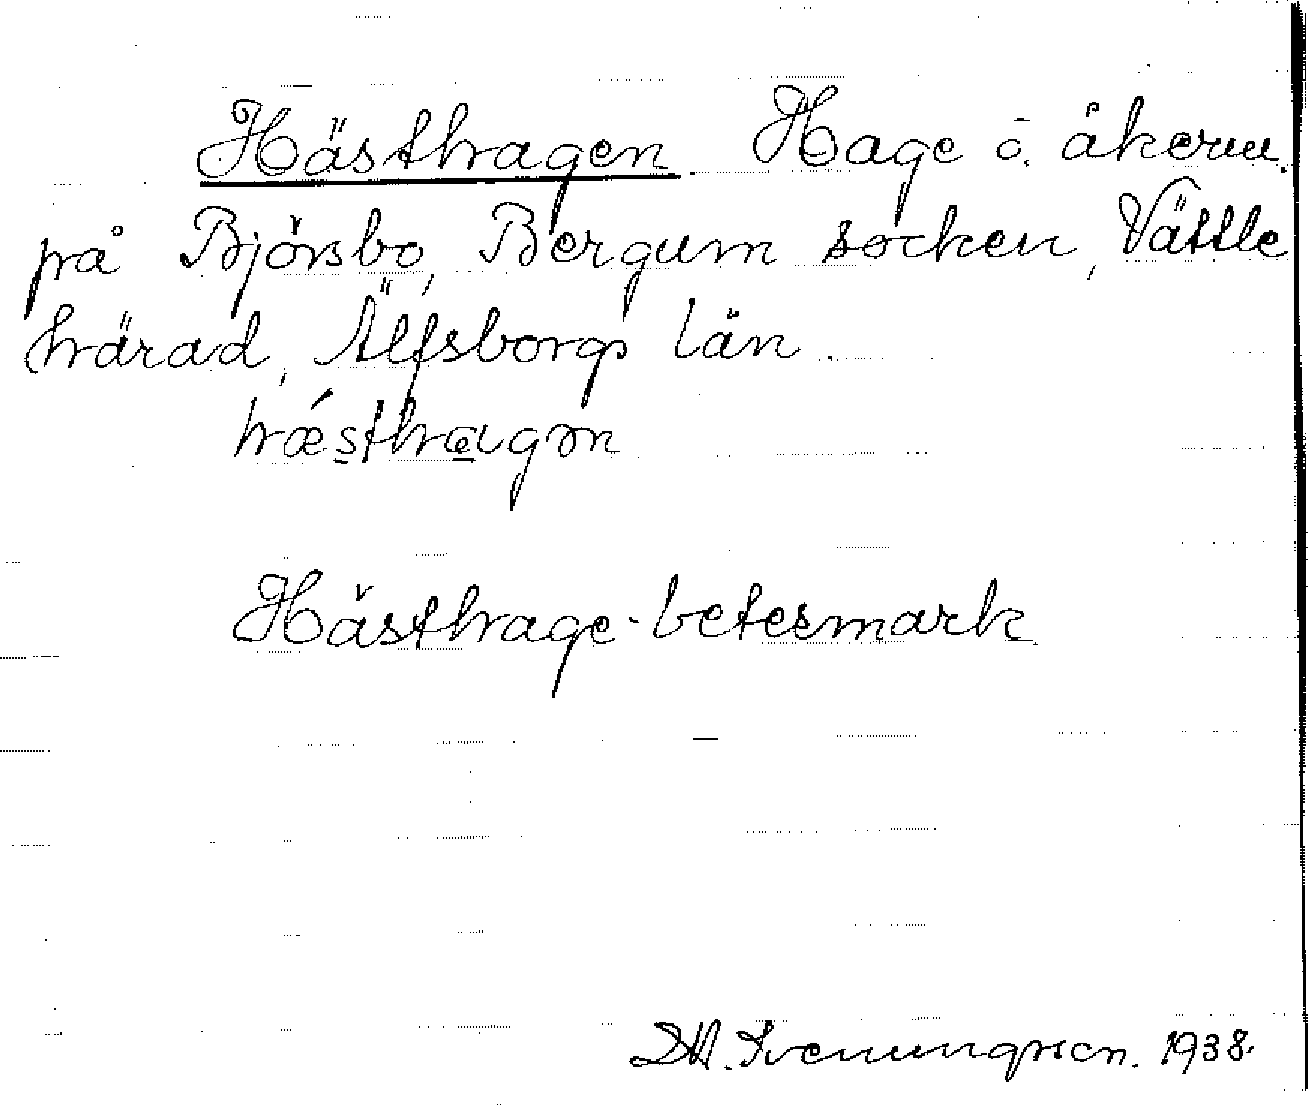 Hästhagen Hage o. åkern.
på Björsbo, Bergum socken, Vättle
härad, Älfsborgs län.
hǽsthagɘn
Hästhage - betesmark
Svenungsson. 1938.